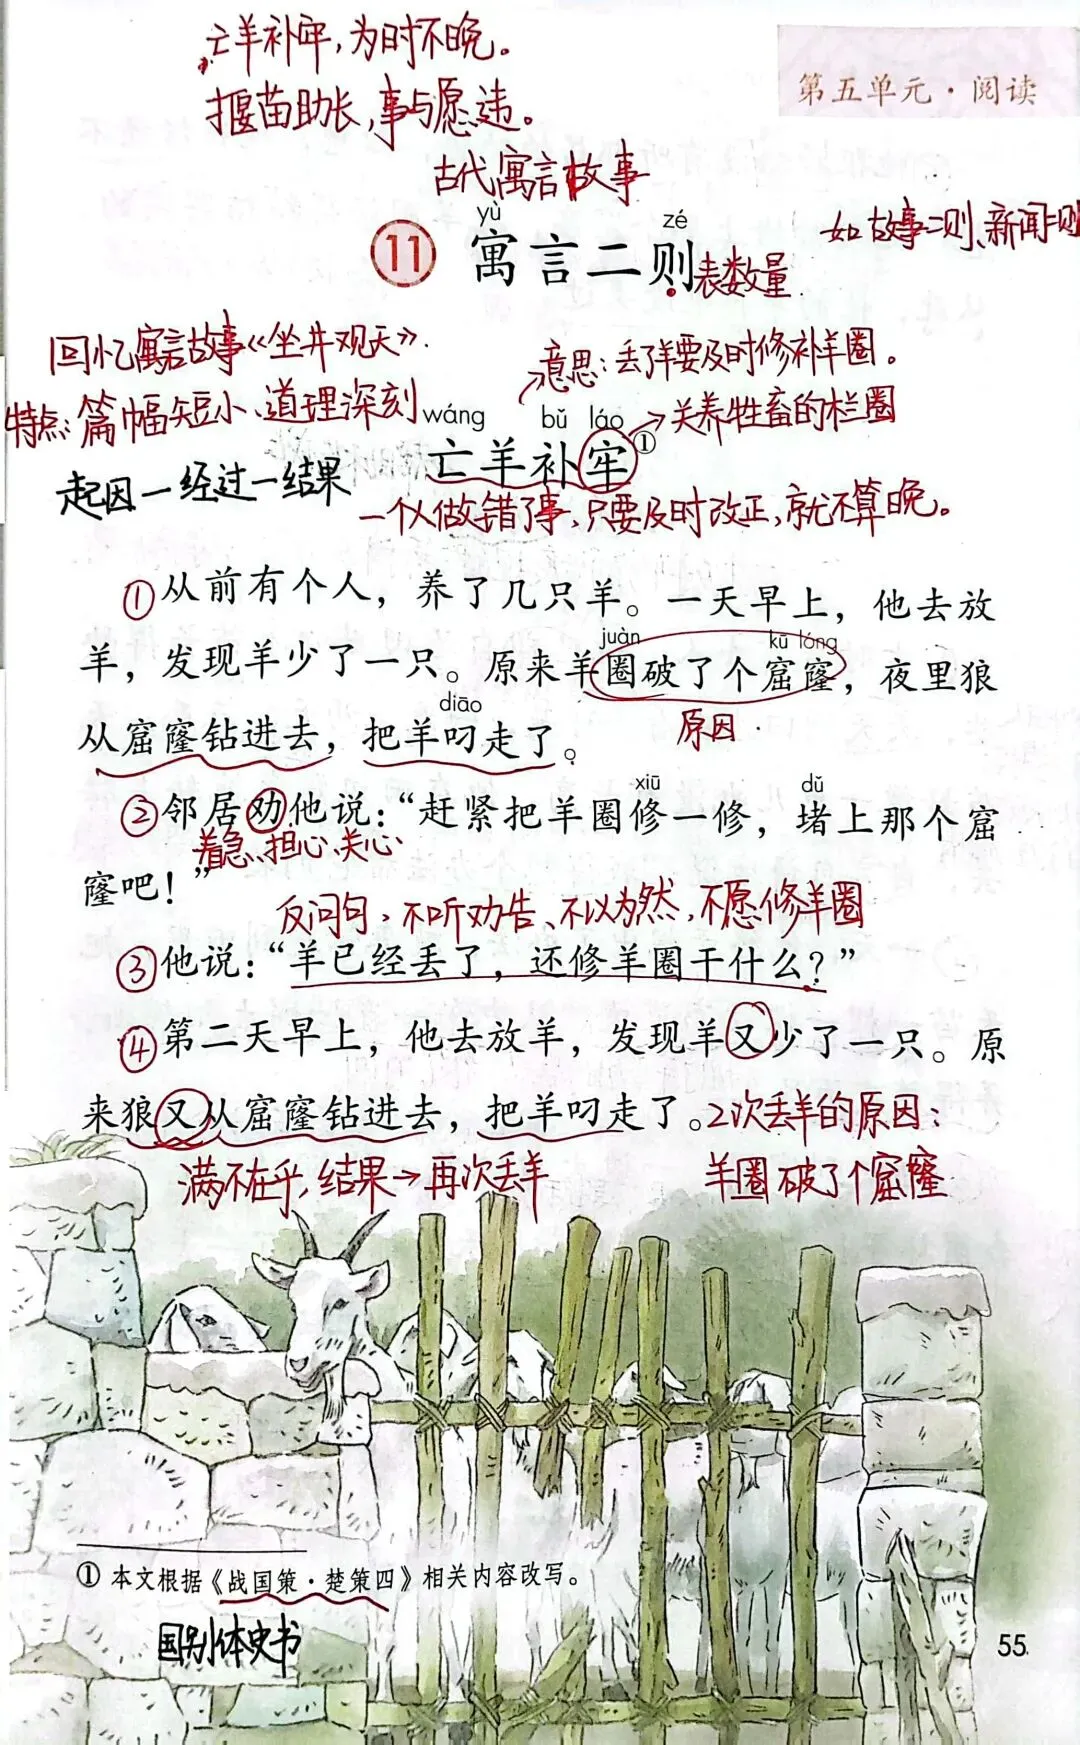 亡羊补牢,为时不晚。
揠苗助长,事与愿违。
第五单元·阅读
古代寓言故事
yù zé
11 寓言二则
表数量
如故事二则、新闻二则
回忆寓言故事《坐井观天》.
特点:篇幅短小、道理深刻
意思:丢了羊要及时修补羊圈。
关养牲畜的栏圈
wáng bǔ láo
亡羊补牢①
起因—经过—结果
一个人做错了事,只要及时改正,就不算晚。
①从前有个人,养了几只羊。一天早上,他去放
juàn kū lóng
羊,发现羊少了一只。原来羊圈破了个窟窿,夜里狼
原因
diāo
从窟窿钻进去,把羊叼走了。
xiū dǔ
②邻居劝他说:“赶紧把羊圈修一修,堵上那个窟
着急、担心、关心
窿吧!”
反问句,不听劝告、不以为然,不愿修羊圈
③他说:“羊已经丢了,还修羊圈干什么?”
④第二天早上,他去放羊,发现羊又少了一只。原
来狼又从窟窿钻进去,把羊叼走了。
2次丢羊的原因:
满不在乎,结果→再次丢羊
羊圈破了个窟窿
① 本文根据《战国策·楚策四》相关内容改写。
国别体史书
55